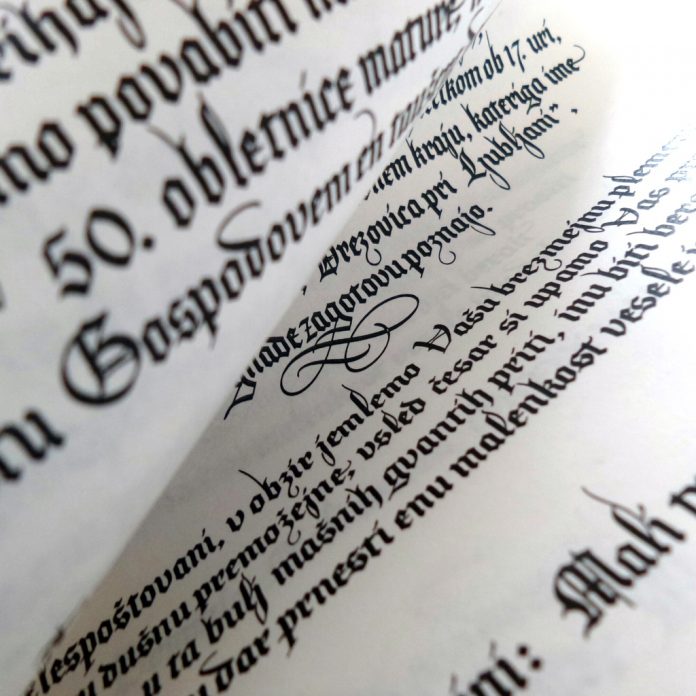 rihaj
mo povabiti
50. obletnice mature,
tu Gospodovem en
tkom ob 17. uri,
nem kraju, kateriga ime
, Brezovica pri Ljubljani",
zagotovu poznajo.
lespoštovani, v obzir jemlemo Vašu brezmejnu pleme
u dušnu premožejne, vsled česar si upamo Vas
u ta bulj mašnih gvantih priti, inu biti
u dar prnesti enu malenkost vesele
ni: Mali